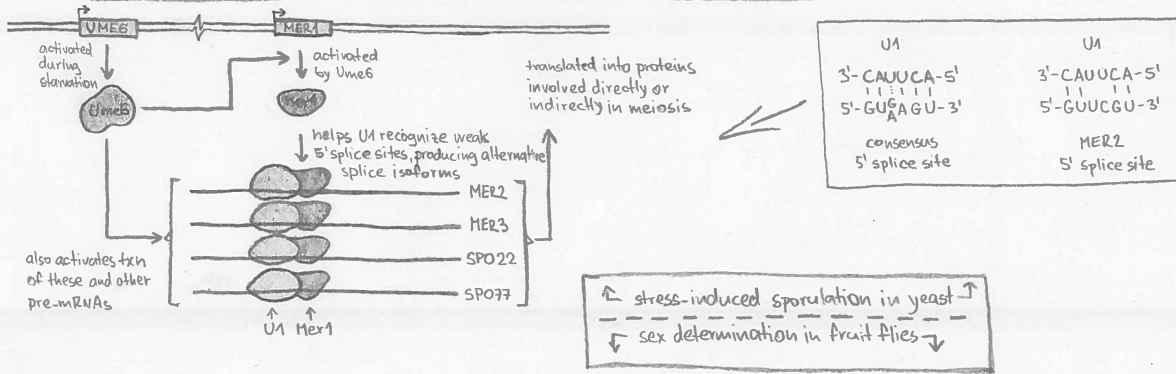 UME6
MER1
activated
during
starvation
Ume6
activated
by Ume6
Mer1
helps U1 recognize weak
5' splice sites, producing alternative
splice isoforms
MER2
MER3
SPO22
SPO77
U1
Mer1
also activates txn
of these and other
pre-mRNAs
translated into proteins
involved directly or
indirectly in meiosis
U1
3'-CAUUCA-5'
5'-GUGAGU-3'
A
consensus
5' splice site
U1
3'-CAUUCA-5'
5'-GUUCGU-3'
MER2
5' splice site
stress-induced sporulation in yeast
sex determination in fruit flies